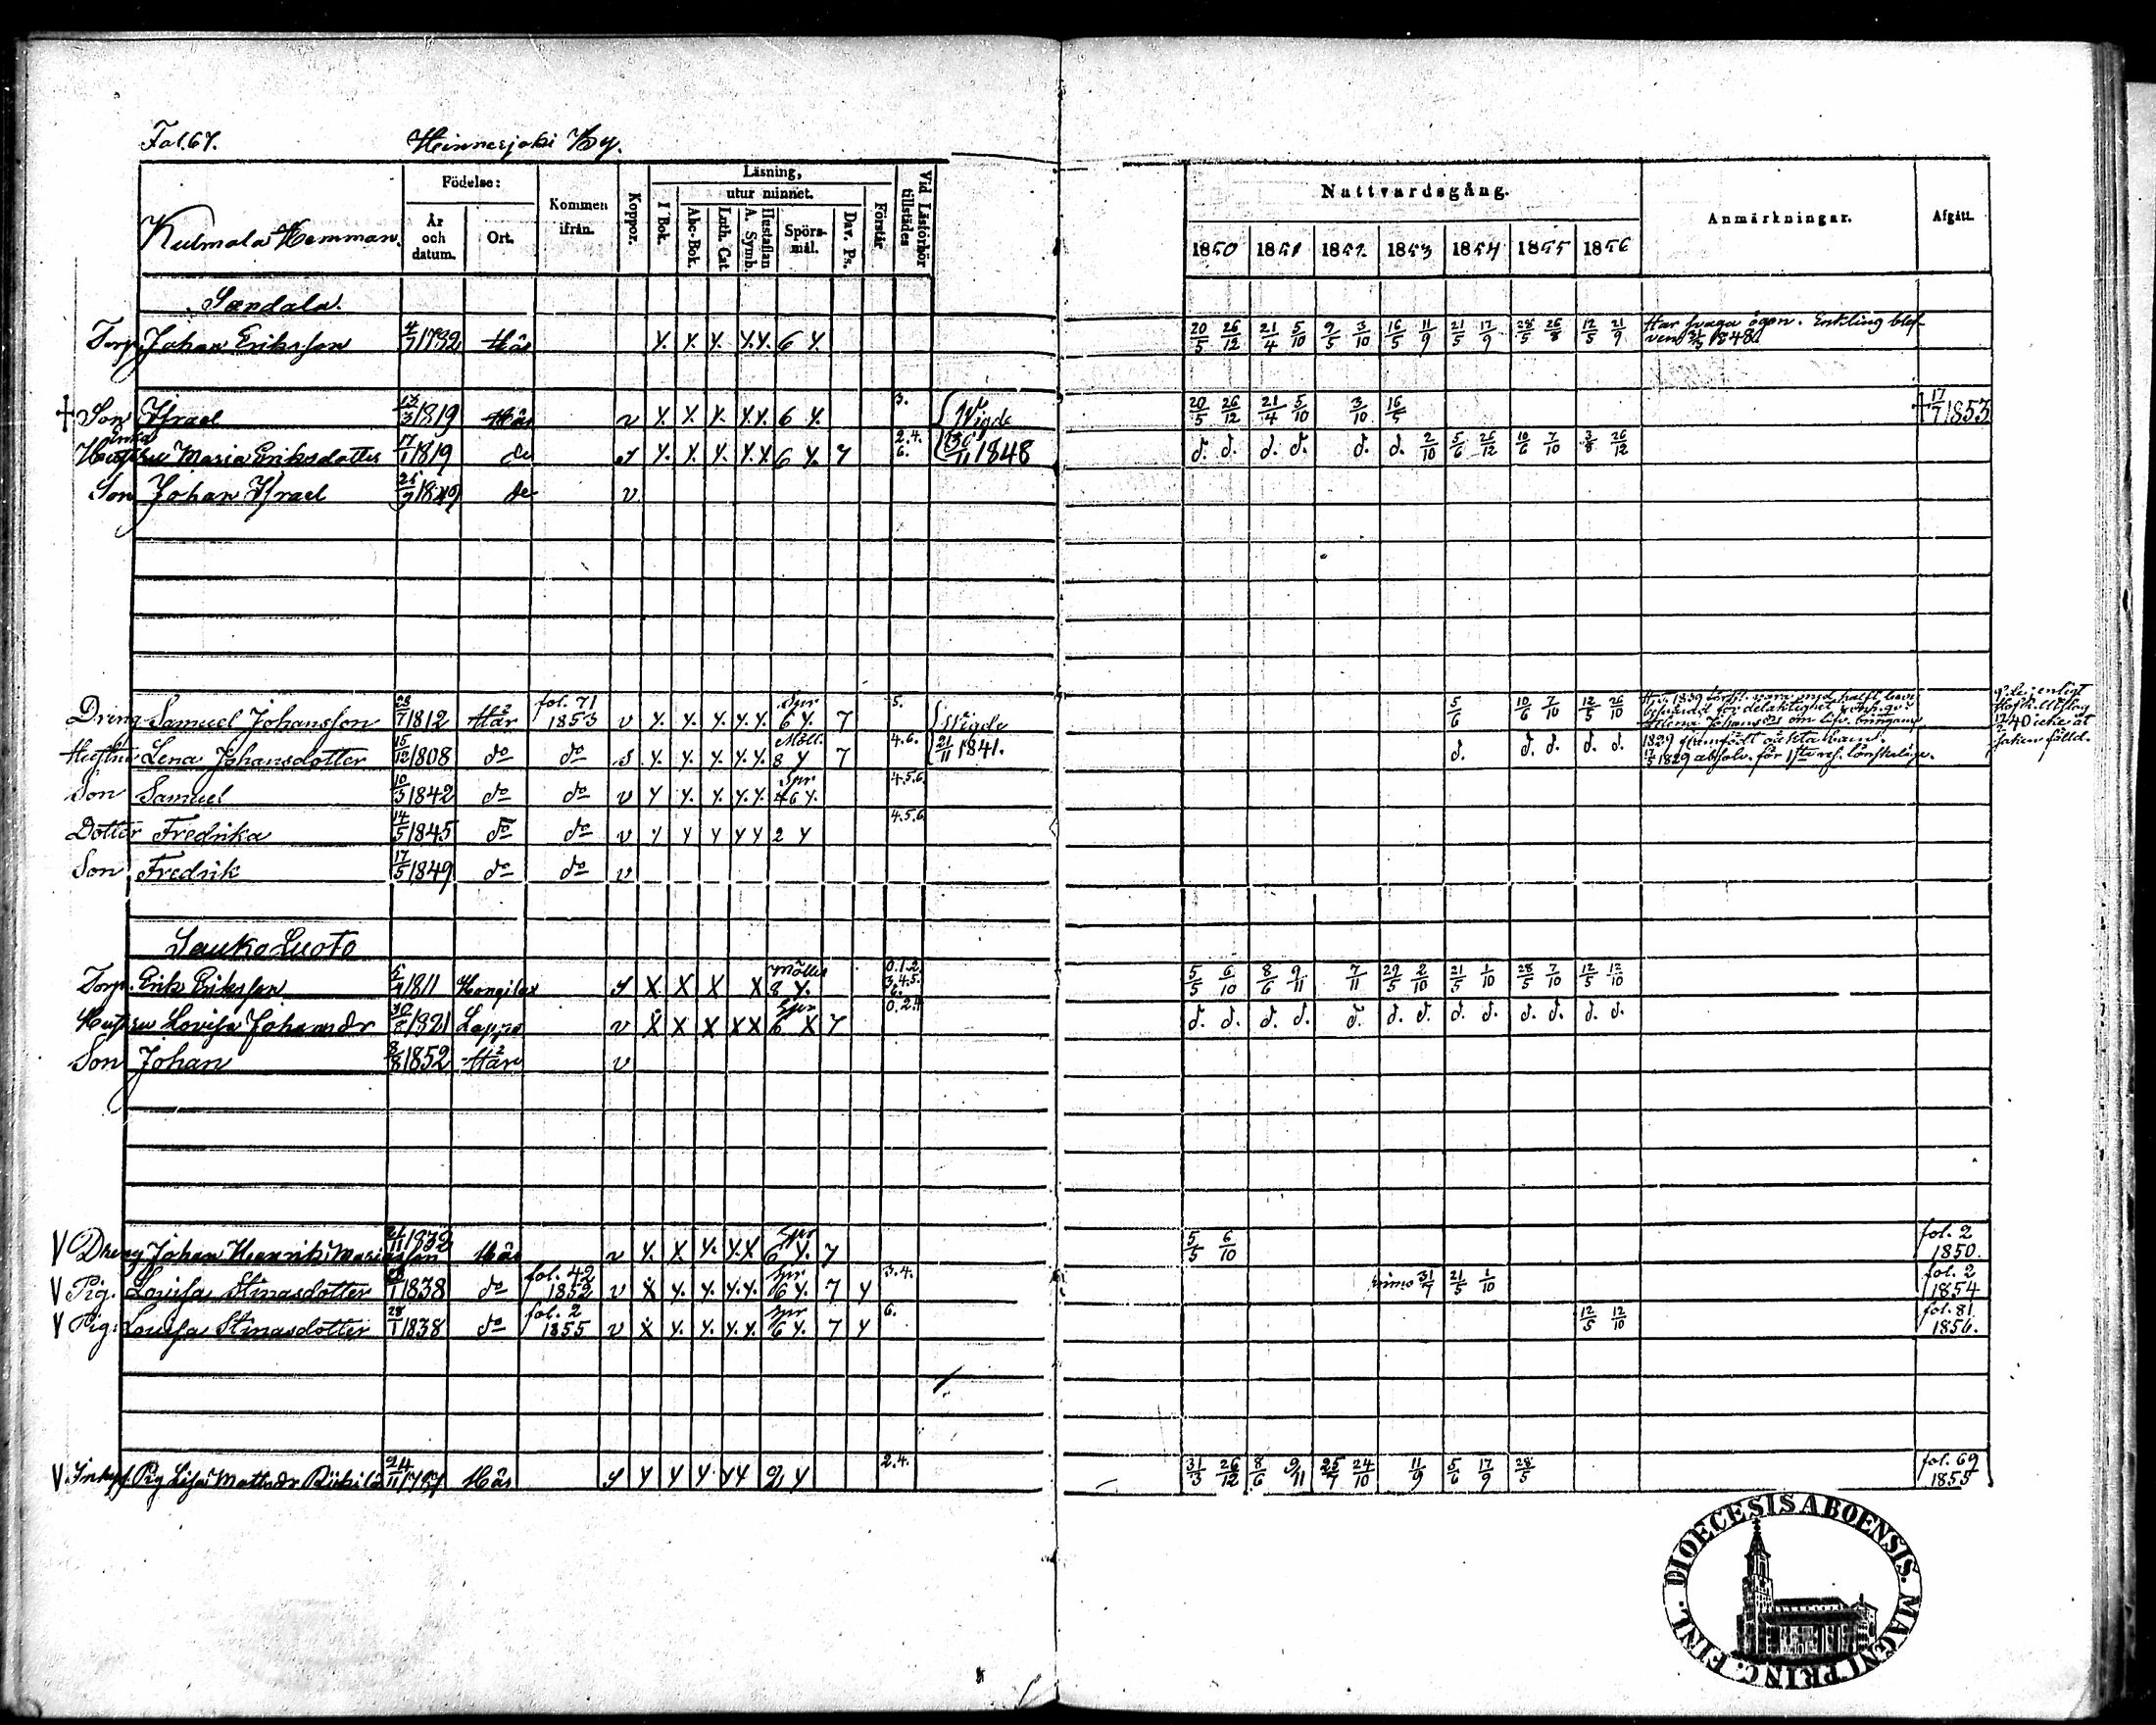 Fol. 67. Hinnerjoki By.
Kulmala Hemman.
Födelse:
År och datum.
Ort.
Kommen ifrån.
Koppor.
Läsning,
I Bok.
utur minnet.
Abc-Bok.
Luth. Cat.
A. Symb.
Hustaflan
Spörsmål.
Dav. Ps.
Förstår.
Vid Läsförhör tillstädes
Nattvardsgång.
1850 1851 1852 1853 1854 1855 1856
Anmärkningar.
Afgått.
Sandala.
Torp. Johan Eriksson 4/7 1792 Y. Y. Y. Y. Y. 6 Y. 20/5 26/12 21/4 5/10 9/5 3/10 16/5 11/9 21/5 17/9 28/5 26/8 12/5 21/9 Har svaga ögon. Enkling blef-
† Son Israel 13/3 1819 v Y. Y. Y. Y. Y. 6 Y. 3. Wigde 20/5 26/12 21/4 5/10 3/10 16/5 † 17/7 1853
Enka
Hustru Maria Eriksdotter 17/1 1819 do Y. Y. Y. Y. Y. 6 Y. 7 2. 4. 6. 30/11 1848 d. d. d. d. d. d. 2/10 5/6 26/12 10/6 7/10 3/8 26/12
Son Johan Israel 1849 do v
Dräng Samuel Johansson 23/7 1812 fol. 71 1853 v Y. Y. Y. Y. Y. Spr 6 Y. 7 5. Wigde 5/6 10/6 7/10 12/5 26/10
Hustru Lena Johansdotter 15/12 1808 do do S Y. Y. Y. Y. Y. 8 Y 7 4. 6. 21/11 1841. d. d. d. d. d.
17/5 1829 absolv. för
Son Samuel 10/3 1842 do do v Y Y. Y. Y. Y. Spr 6 Y. 4.5.6
Dotter Fredrika 14/5 1845 do do v Y Y Y Y Y 2 Y 4.5.6
Son Fredrik 17/5 1849 do do v
Sauko Luoto
Torp. Erik Eriksson 1811 Hongilax S X X X X 8 Y. 0.1.2. 3.4.5. 6. 5/5 6/10 8/6 9/11 7/11 29/5 2/10 21/5 1/10 28/5 7/10 12/5 12/10
Hustru Lovisa Johansdr 1821 Lappo v X X X X X Spr 6 X 7 0.2.4 d. d. d. d. d. d. d. d. d. d. d. d. d.
Son Johan 8/8 1852 v
V Dreng Johan Henrik Mariasson 1832 v Y. X Y. Y. X Spr 6 Y. 7 5/5 6/10 fol. 2 1850.
V Pig. Lovisa Stinasdotter 28/1 1838 do fol. 42 1852 v X Y. Y. Y. Y. Spr 6 Y. 7 Y 3.4. primo 31/7 21/5 1/10 fol. 2 1854
V Pig: Lovisa Stinasdotter 28/1 1838 do fol. 2 1855 v X Y. Y. Y. Y. Spr 6 Y. 7 Y 6. 12/5 12/10 fol. 81 1856.
V Inhys. Pig Lisa Mattsdr 24/11 1787 S Y Y Y Y Y 2 Y 2.4. 31/3 26/12 8/6 9/11 25/7 24/10 11/9 5/6 17/9 28/5 fol. 69 1855
DIOECESIS ABOENSIS. MAGNI PRINC. FINL.